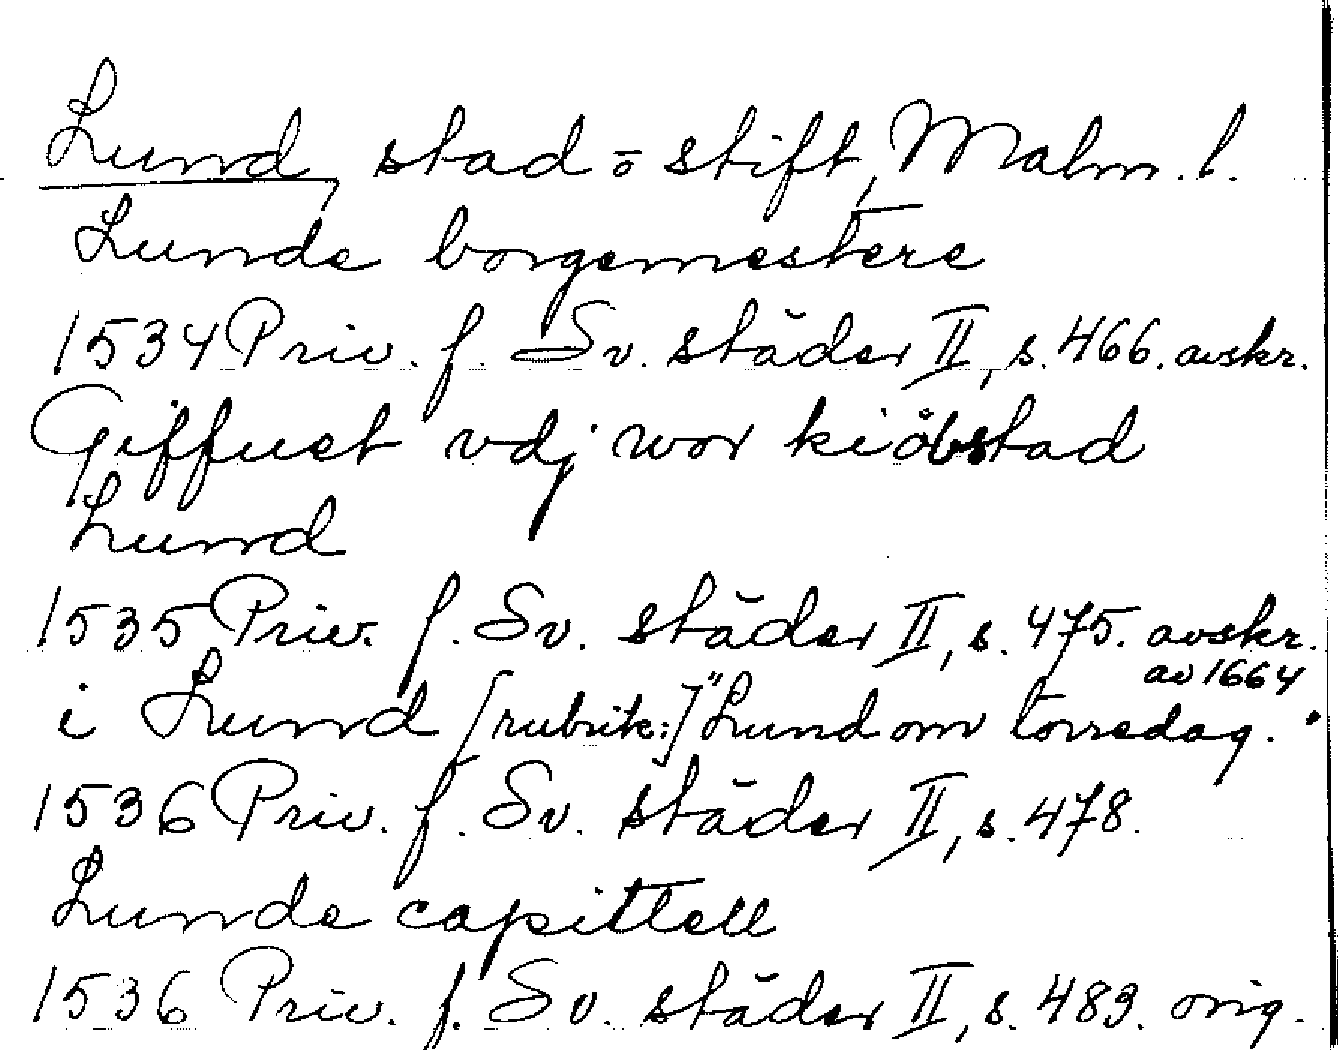 Lund, stad o stift, Malm. l.
Lunde borgemestere
1534 Priv. f. Sv. städer II, s. 466. avskr.
Giffuet vdj wor kiöbstad
Lund
1535 Priv. f. Sv. städer II, s. 475. avskr.
av 1664
i Lund [rubrik:] "Lund om torsdag."
1536 Priv. f. Sv. städer II, s. 478.
Lunde capittell
1536 Priv. f. Sv. städer II, s. 483. orig.